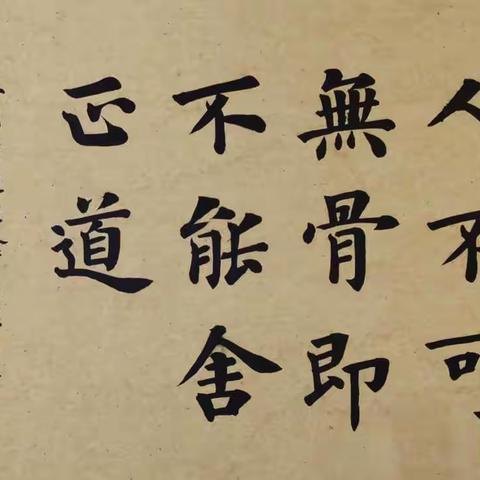 人不可
無骨即
不能舍
正道